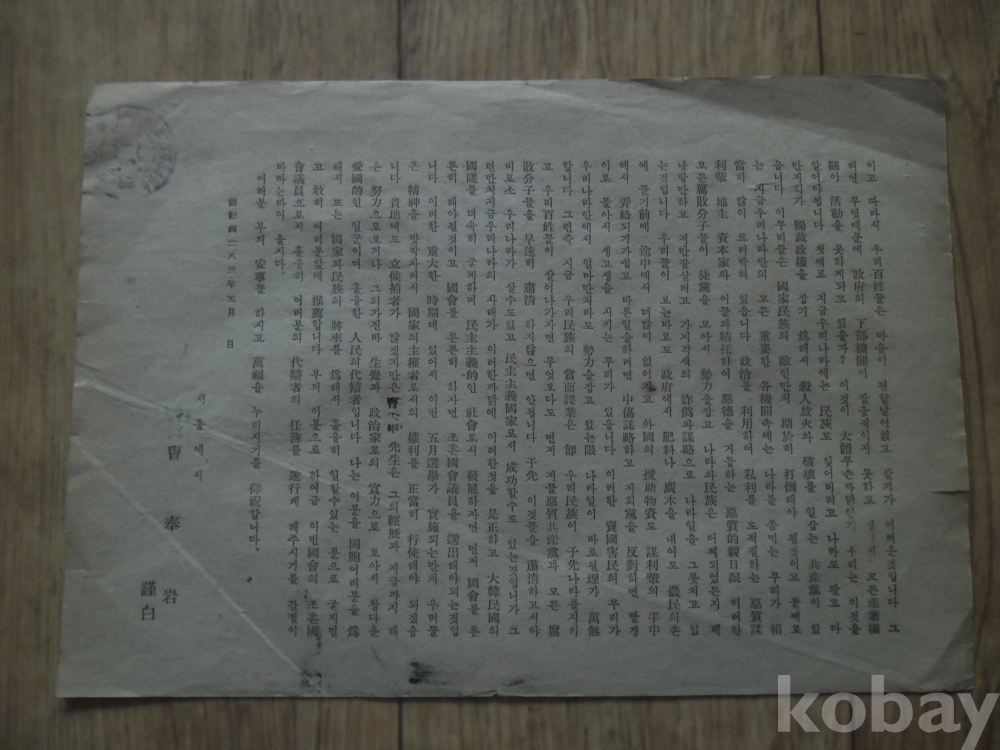 하고 따라서 우리百姓들은 마음이 편할날이없고 살기가 어려운것입니다 그
러면 무엇때문에 政府의 下部機關이 잘움제이지 못하고 모든產業機
關이 活動을 못하게되고 있을까? 이것이 大體무슨까닭인가 우리는 이것을
알어야됩니다 첫째로 지금우리나라에는 民族도 잊어버리고 나라도 팔고 다
만저다가 獨裁政權을 잡기 爲해서 殺人放火와 破壞를 일삼는 共產黨이 있
읍니다 이무리들은 國家民族의 敵인만치 期於히 打倒해야 될것이고 둘째로
는 지금우리나라안의 모든 重要한 各機關속에는 나라를 좀먹는 무리가 相
當히 많이 트러박혀 있읍니다 政治를 利用하여 私利를 도적질하는 惡質謀
利輩 地主 資本家와 이들과結托하여 惡德을 거듭하는 惡質的親日派 이러한
모든腐敗分子들이 徒黨을 모아서 勢力을잡고 나라와民族은 어찌되었든지 제
낭탁만하고 제만잘살려고 가지각색의 詐僞와謀略으로 나라일을 그릇치고 있
는것입니다 우리들이 오는바로도 政府에서 肥料나 廣木을 내여도 農民의손
에 들기前에 途中에서 더많이 없어지고 外國의 援助物資도 謀利輩의 手中
에서 弄絡되기가쉽고 바른일을하려면 中傷謀略하고 저희黨을 反對하면 빨갱
이로 몰아서 생고생을 시키는 무리가 있읍니다 이러한 賣國害民의 무리가
우리나라안에서 얼마만치라도 勢力을잡고 있는限 나라일이 바로될理가 萬無
합니다 그런즉 지금 우리民族의 當面課業은 卽 우리民族이 于先나라를지키
고 우리百姓들이 살어나가자면 무엇보다도 먼저 저들惡質共產黨과 모든 腐
敗分子들을 早速히 肅淸 하지않으면 안됩니다 于先 이것들을 肅淸하고서야
비로소 우리나라가 살수도있고 民主主義國家로서 成功할수도 있는것입니가 그
런만치지금우리나라의 사태가 이러한까닭에 이러한것을 是正하고 大韓民國의
國礎를 더욱히 굳게하며 民主主義的인 社會로서 發展하자면 먼저 國會를 튼
튼히 해야될것이고 國會를 튼튼히 하자면 조흔國會議員을 選出해야되는것입
니다 이러한 重大한 時期에 있어서 이번 五月選擧가 實施되는만치 우리들
은 精神을 밧작차려서 國家의主權者로서의 權利를 正當히 行使해야 되겠읍
니다 貴地에도 立候補者가 많겠지만은 曺 先生은 그의經歷과 지금까지 해
온 努力으로보거나 그의가진바 生覺과 政治家로의 實力으로 보아서 참다운
愛國的인 일군이며 훌융한 人民의代辯者입니다 나는 이분을 同胞여러분을 爲
해서 또는 國家와民族의 將來를 爲해서 훌융히 일할수있는 분으로 굳게믿
고 敢히 여러분앞에 推薦합니다 부듸 이분으로 하여금 이번國會의 조흔國
會議員으로서 훌융히 여러분의 代辯者의 任務를 遂行케 해주시기를 간절이
바라는바이 올시다.
여러분 부듸 安寧를 하시고 萬福을 누리시기를 仰祝합니다。
檀紀四二八三年 五月 日
서울에서
曺奉岩
謹白
kobay